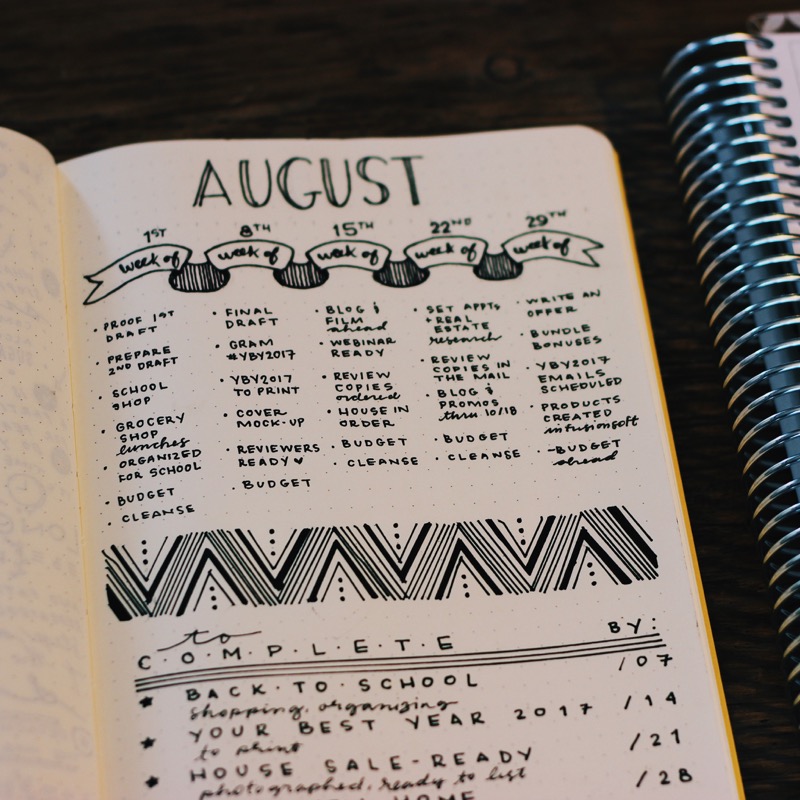 AUGUST
1ST 8TH 15TH 22ND 29TH
week of week of week of week of week of
• PROOF 1ST
DRAFT
• PREPARE
2ND DRAFT
• SCHOOL
SHOP
• GROCERY
SHOP
lunches
• ORGANIZED
FOR SCHOOL
• BUDGET
• CLEANSE
• FINAL
DRAFT
• GRAM
#YBY2017
• YBY2017
TO PRINT
• COVER
MOCK-UP
• REVIEWERS
READY ♥
• BUDGET
• BLOG &
FILM
ahead
• WEBINAR
READY
• REVIEW
COPIES
ordered
• HOUSE IN
ORDER
• BUDGET
• CLEANSE
• SET APPTS
+ REAL
ESTATE
research
• REVIEW
COPIES IN
THE MAIL
• BLOG &
PROMOS
thru 10/18
• BUDGET
• CLEANSE
• WRITE AN
OFFER
• BUNDLE
BONUSES
• YBY2017
EMAILS
SCHEDULED
• PRODUCTS
CREATED
infusionsoft
• BUDGET
ahead
to
C·O·M·P·L·E·T·E BY:
★ BACK·TO·SCHOOL /07
shopping, organizing
★ YOUR BEST YEAR 2017 /14
to print
★ HOUSE SALE-READY /21
photographed, ready to list
HOME /28